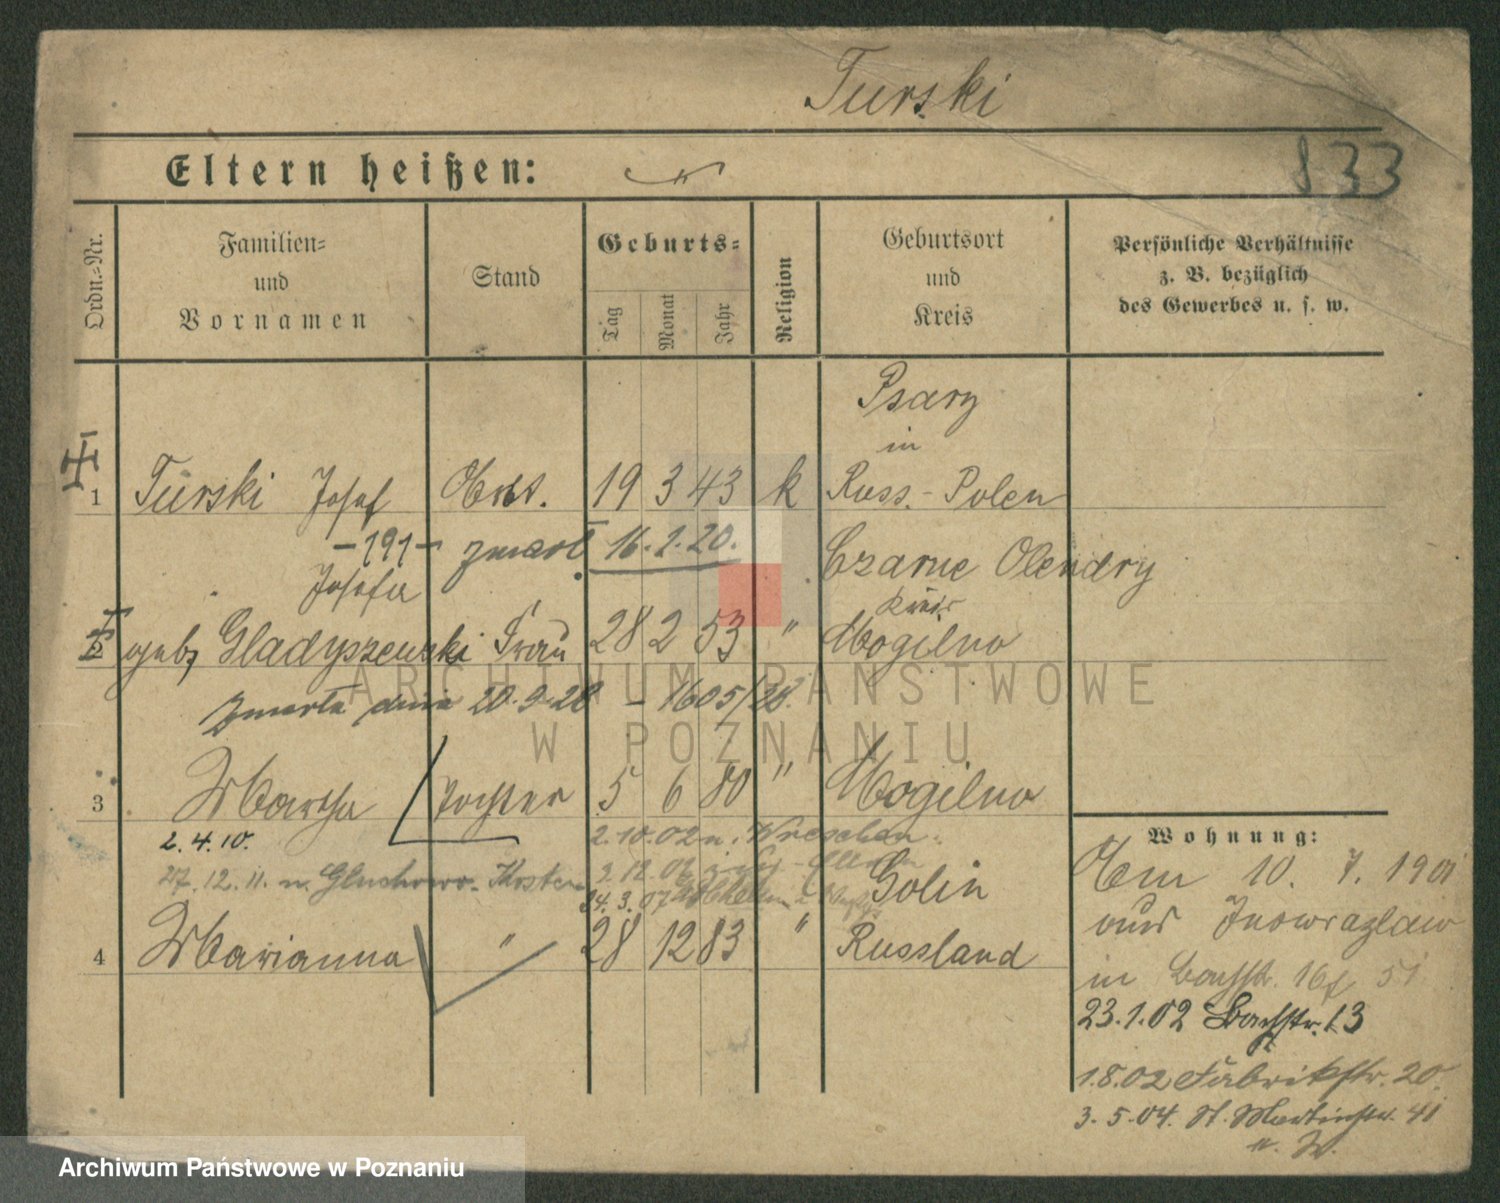 Turski
833
Eltern heißen:
Ordn.-Nr.
Familien- und Vornamen
Stand
Geburts-
Tag
Monat
Jahr
Religion
Geburtsort und Kreis
Persönliche Verhältnisse z. B. bezüglich des Gewerbes u. s. w.
Psary
in
1 Turski Josef 19 3 43 k Russ.-Polen
zmarł 16.1.20.
Czarne Olendry
Josefa
Kreis
2 geb. Gladyszewski Frau 28 2 53 " Mogilno
zmarła dnia 20.9.28 - 1605/28.
3 Martha Tochter 5 6 80 " Mogilno
2.4.10.
2.10.02 n. Wreschen
27.12.11. n. Gluchowo. Kosten
3.12.06
24.3.07
Golin
4 Marianna " 28 12 83 " Russland
Wohnung:
Am 10. 7. 1901
aus Inowrazlaw
in Bachstr. 16
23.1.02 Bachstr. 13
1.8.02 Fabrikstr. 20.
3.5.04. St. Martinstr. 41
ARCHIWUM PAŃSTWOWE
W POZNANIU
Archiwum Państwowe w Poznaniu